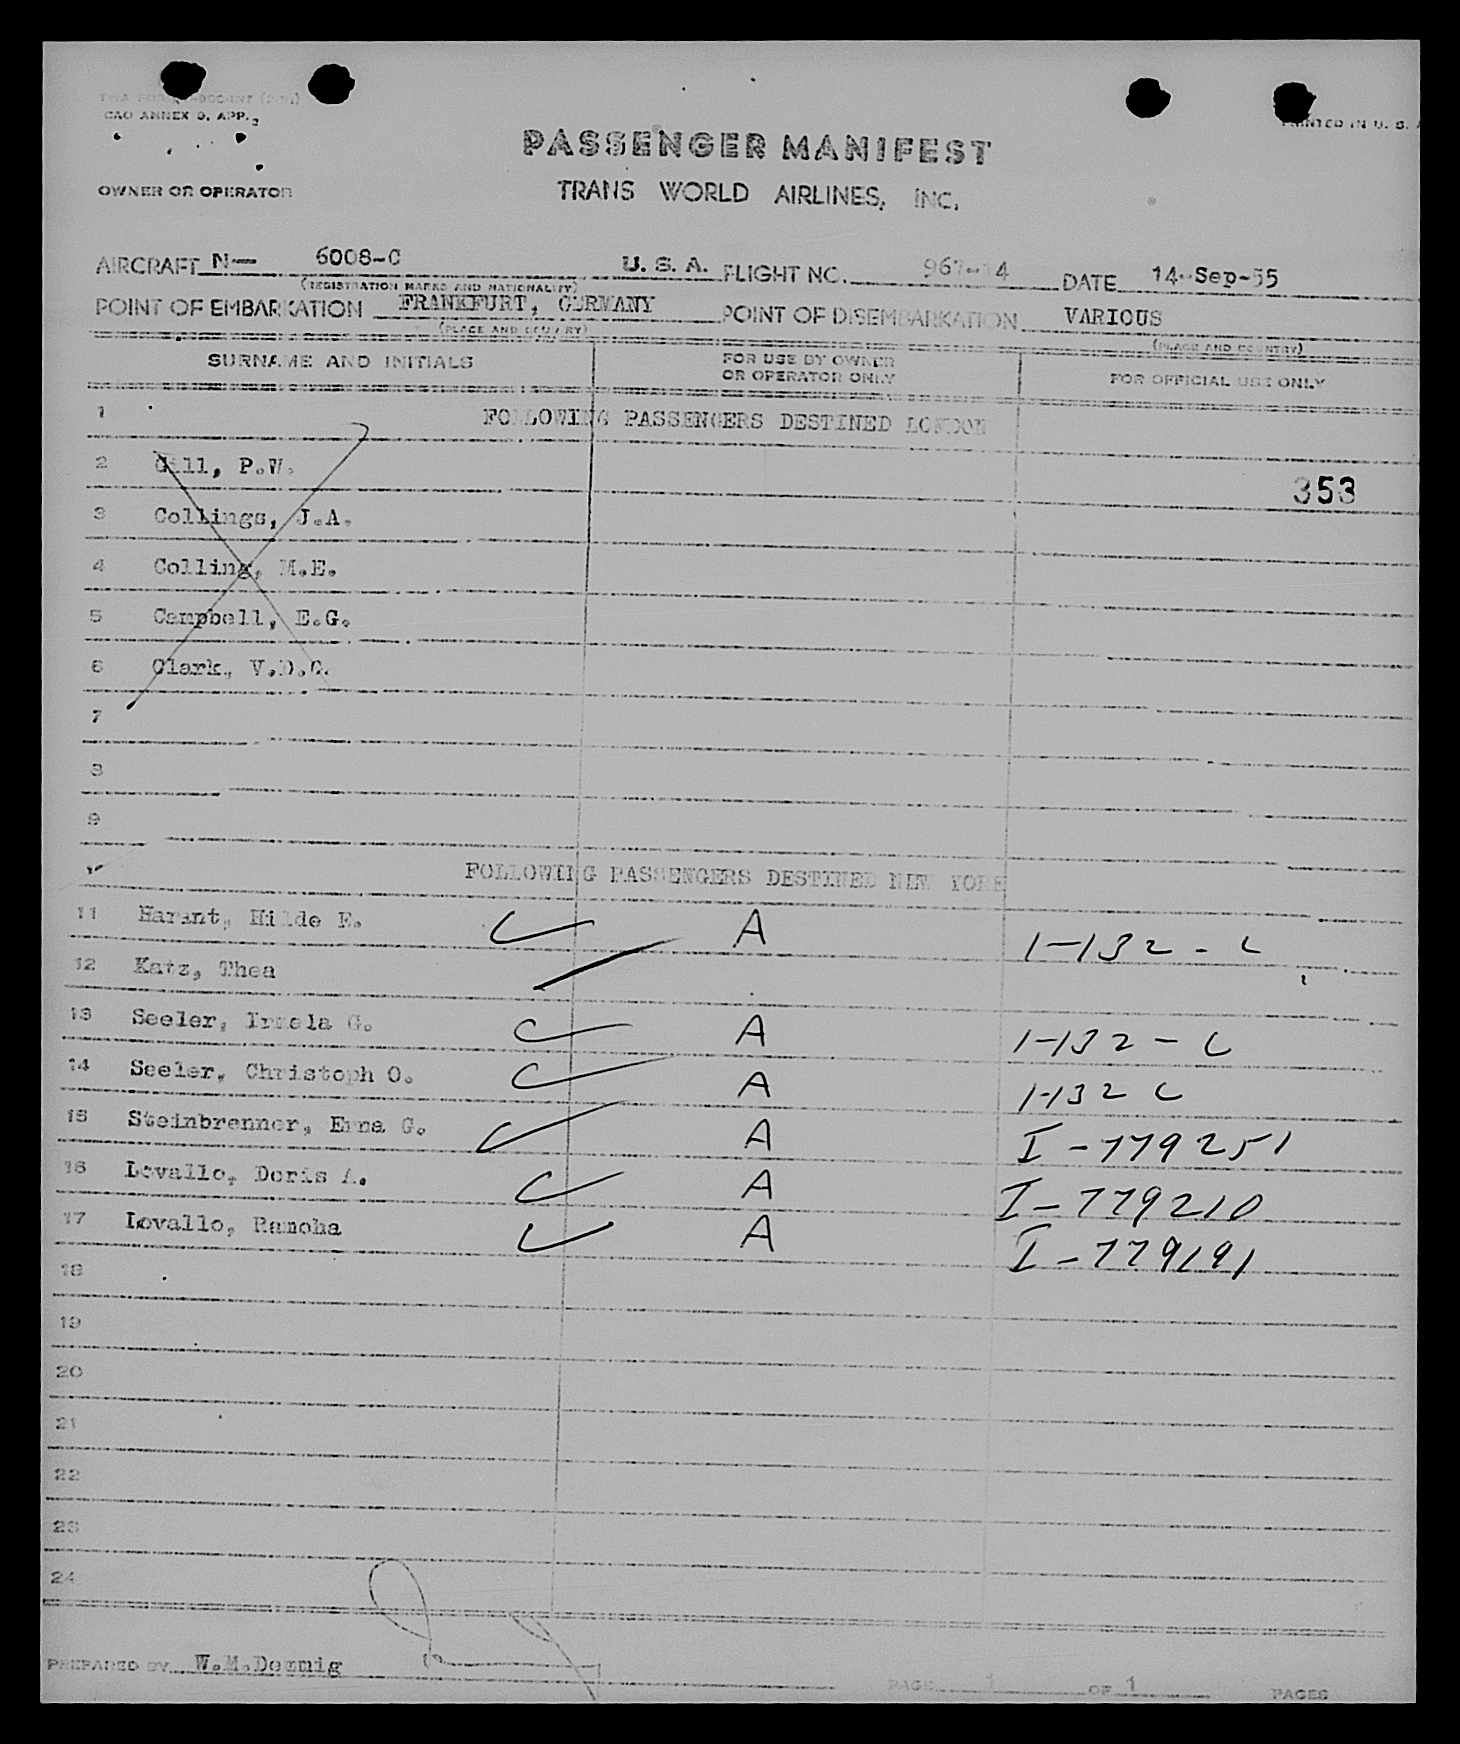 CAO ANNEX 9, APP. 2
PRINTED IN U. S. A
PASSENGER MANIFEST
OWNER OR OPERATOR
TRANS WORLD AIRLINES, INC.
AIRCRAFT N— 6008-C U. S. A. FLIGHT NO. 967-14 DATE 14-Sep-55
(REGISTRATION MARKS AND NATIONALITY)
POINT OF EMBARKATION FRANKFURT, GERMANY POINT OF DISEMBARKATION VARIOUS
(PLACE AND COUNTRY) (PLACE AND COUNTRY)
SURNAME AND INITIALS FOR USE BY OWNER OR OPERATOR ONLY FOR OFFICIAL USE ONLY
1 FOLLOWING PASSENGERS DESTINED LONDON
2 Gill, P.W.
353
3 Collings, J.A.
4 Colling, M.E.
5 Campbell, E.G.
6 Clark, V.D.C.
7
8
9
FOLLOWING PASSENGERS DESTINED NEW YORK
11 Harant, Hilde E. A 1-132-C
12 Katz, Thea
13 Seeler, Irmela G. A 1-132-C
14 Seeler, Christoph O. A 1-132 C
15 Steinbrenner, Erna G. A I-779251
16 Lovallo, Doris A. A I-779210
17 Lovallo, Ramona A I-779191
18
19
20
21
22
23
24
PREPARED BY W.M.Dennig
PAGE 1 OF 1 PAGES